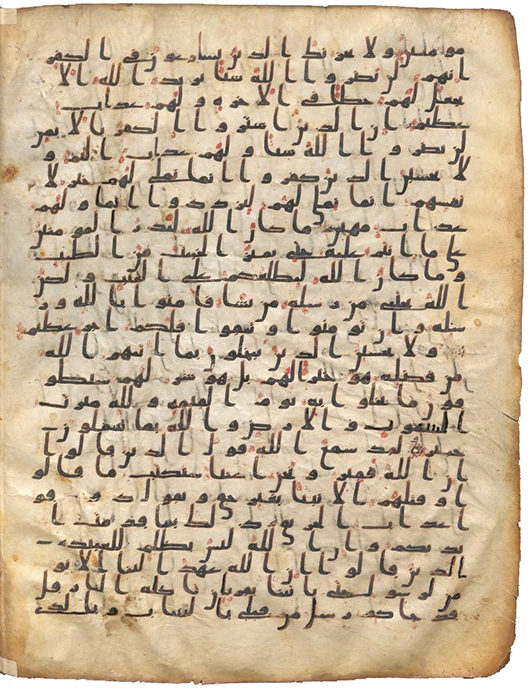 مومنين ولا يحزنك الذين يسارعون في الكفر
انهم لن يضروا الله شيا يريد الله الا
يجعل لهم حظا في الاخرة ولهم عذاب
عظيم ان الذين اشتروا الكفر بالايمن
لن يضروا الله شيا ولهم عذاب اليم و
لا يحسبن الذين كفروا انما نملي لهم خير لا
نفسهم انما نملي لهم ليزددوا اثما ولهم
عذاب مهين ما كان الله ليذر المومنين
على ما انتم عليه حتى يميز الخبيث من الطيب
وما كان الله ليطلعكم على الغيب ولكن
الله يجتبي من رسله من يشا فامنوا بالله ور
سله وان تومنوا وتتقوا فلكم اجر عظيم
ولا يحسبن الذين يبخلون بما اتيهم الله
من فضله هو خيرا لهم بل هو شر لهم سيطو
قون ما بخلوا به يوم القيمه ولله ميرث
السموت والارض والله بما تعملون
خبير لقد سمع الله قول الذين قالوا
ان الله فقير ونحن اغنيا سنكتب ما قالو
ا وقتلهم الانبيا بغير حق ونقول ذوقو
ا عذاب الحريق ذلك بما قدمت ا
يديكم وان الله ليس بظلم للعبيد
الذين قالوا ان الله عهد الينا الا نو
من لرسول حتى ياتينا بقربان تاكله النار قل
قد جاكم رسل من قبلي بالبينت وبالذ